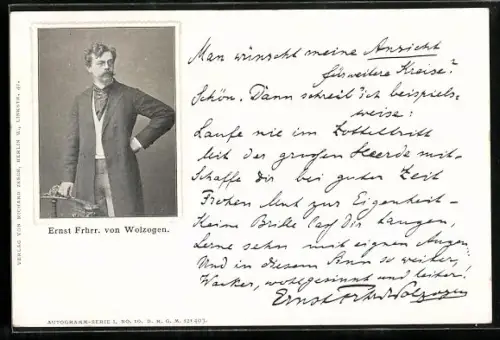 Man wünscht meine Ansicht
für weitere Kreise?
Schön. Dann schreib' ich beispiels-
weise:
Laufe nie im Zotteltritt
Mit der großen Heerde mit –
Schaffe dir bei guter Zeit
Frohen Mut zur Eigenheit –
Keine Brille laß dir taugen,
Lerne sehn mit eignen Augen
Und in diesem Sinn so weiter,
Wacker, wohlgesinnt und heiter!
Ernst Frhr v Wolzogen
Ernst Frhr. von Wolzogen.
VERLAG VON RICHARD ZEECK, BERLIN W., LINKSTR.
AUTOGRAMM-SERIE I, NO. 10. D. R. G. M.